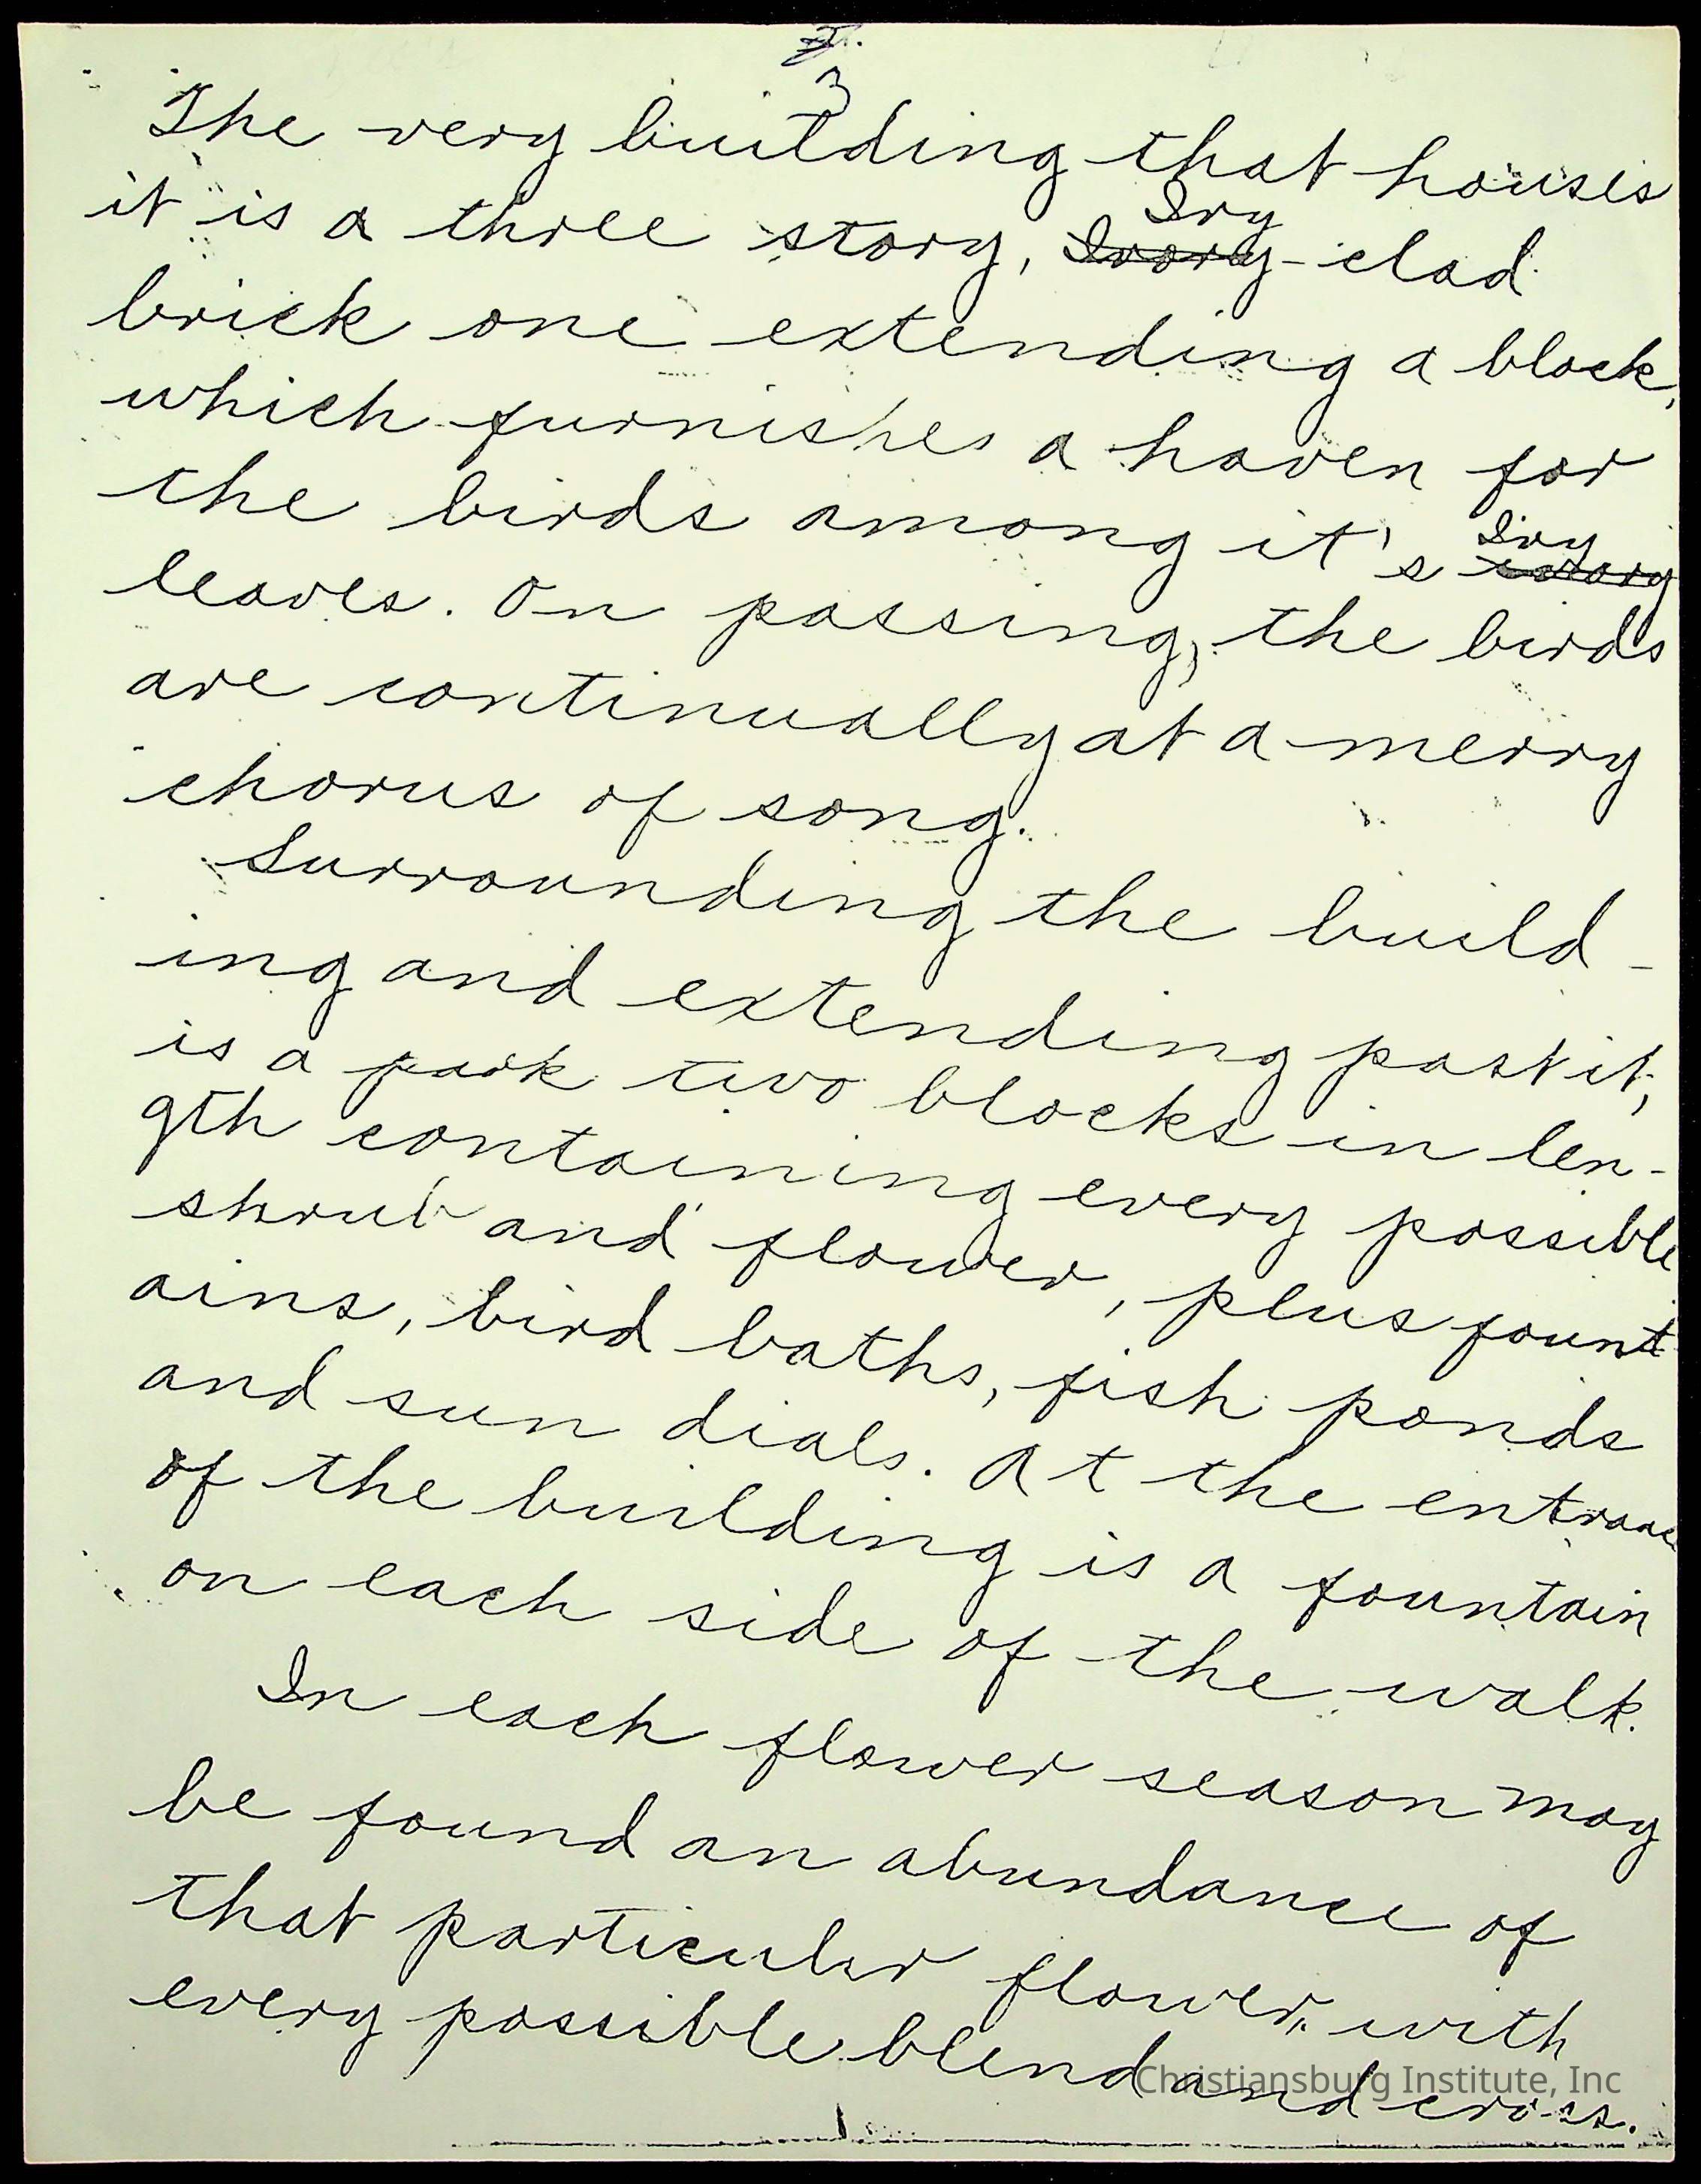 3
The very building that houses
it is a three story, Ivory Ivy -clad
brick one extending a block,
which furnishes a haven for
the birds among it's ivory Ivy
leaves. On passing, the birds
are continually at a merry
chorus of song.
Surrounding the build-
ing and extending past it,
is a park two blocks in len-
gth containing every possible
shrub and flower, plus fount
ains, bird baths, fish ponds
and sun dials. At the entrance
of the building is a fountain
on each side of the walk.
In each flower season may
be found an abundance of
that particular flower, with
every possible blend and cross.
Christiansburg Institute, Inc